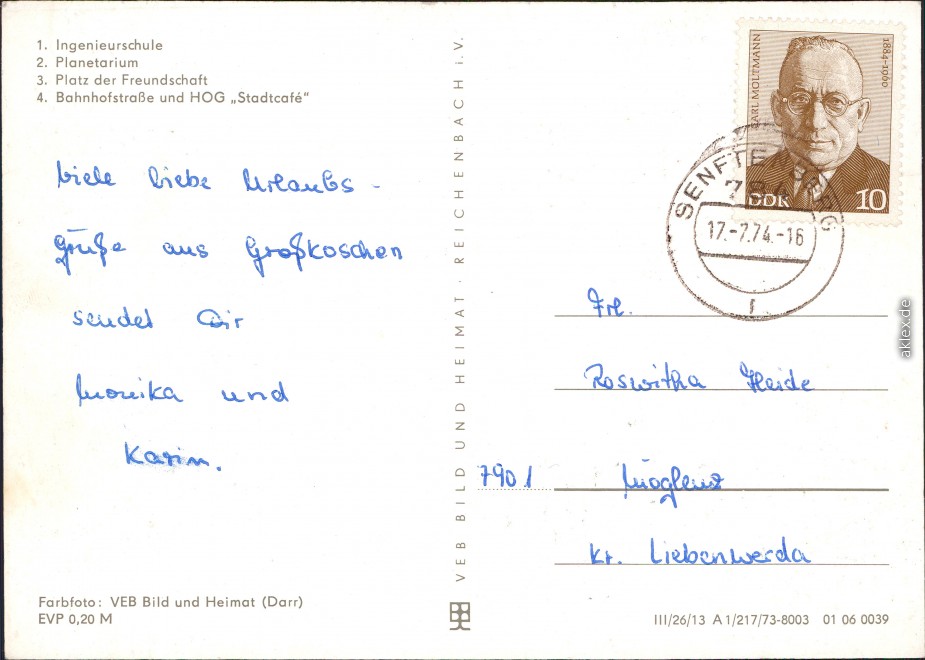 1. Ingenieurschule
2. Planetarium
3. Platz der Freundschaft
4. Bahnhofstraße und HOG „Stadtcafé"
Viele liebe Urlaubs-
grüße aus Großkoschen
sendet Dir
Monika und
Karin.
Farbfoto: VEB Bild und Heimat (Darr)
EVP 0,20 M
VEB BILD UND HEIMAT · REICHENBACH i.V.
KARL MOLTMANN
1884-1960
DDR 10
SENFTENBERG
784
17.-7.74.-16
r
Frl.
Roswitha Heide
7901 Möglenz
Kr. Liebenwerda
III/26/13 A 1/217/73-8003 01 06 0039
aklex.de